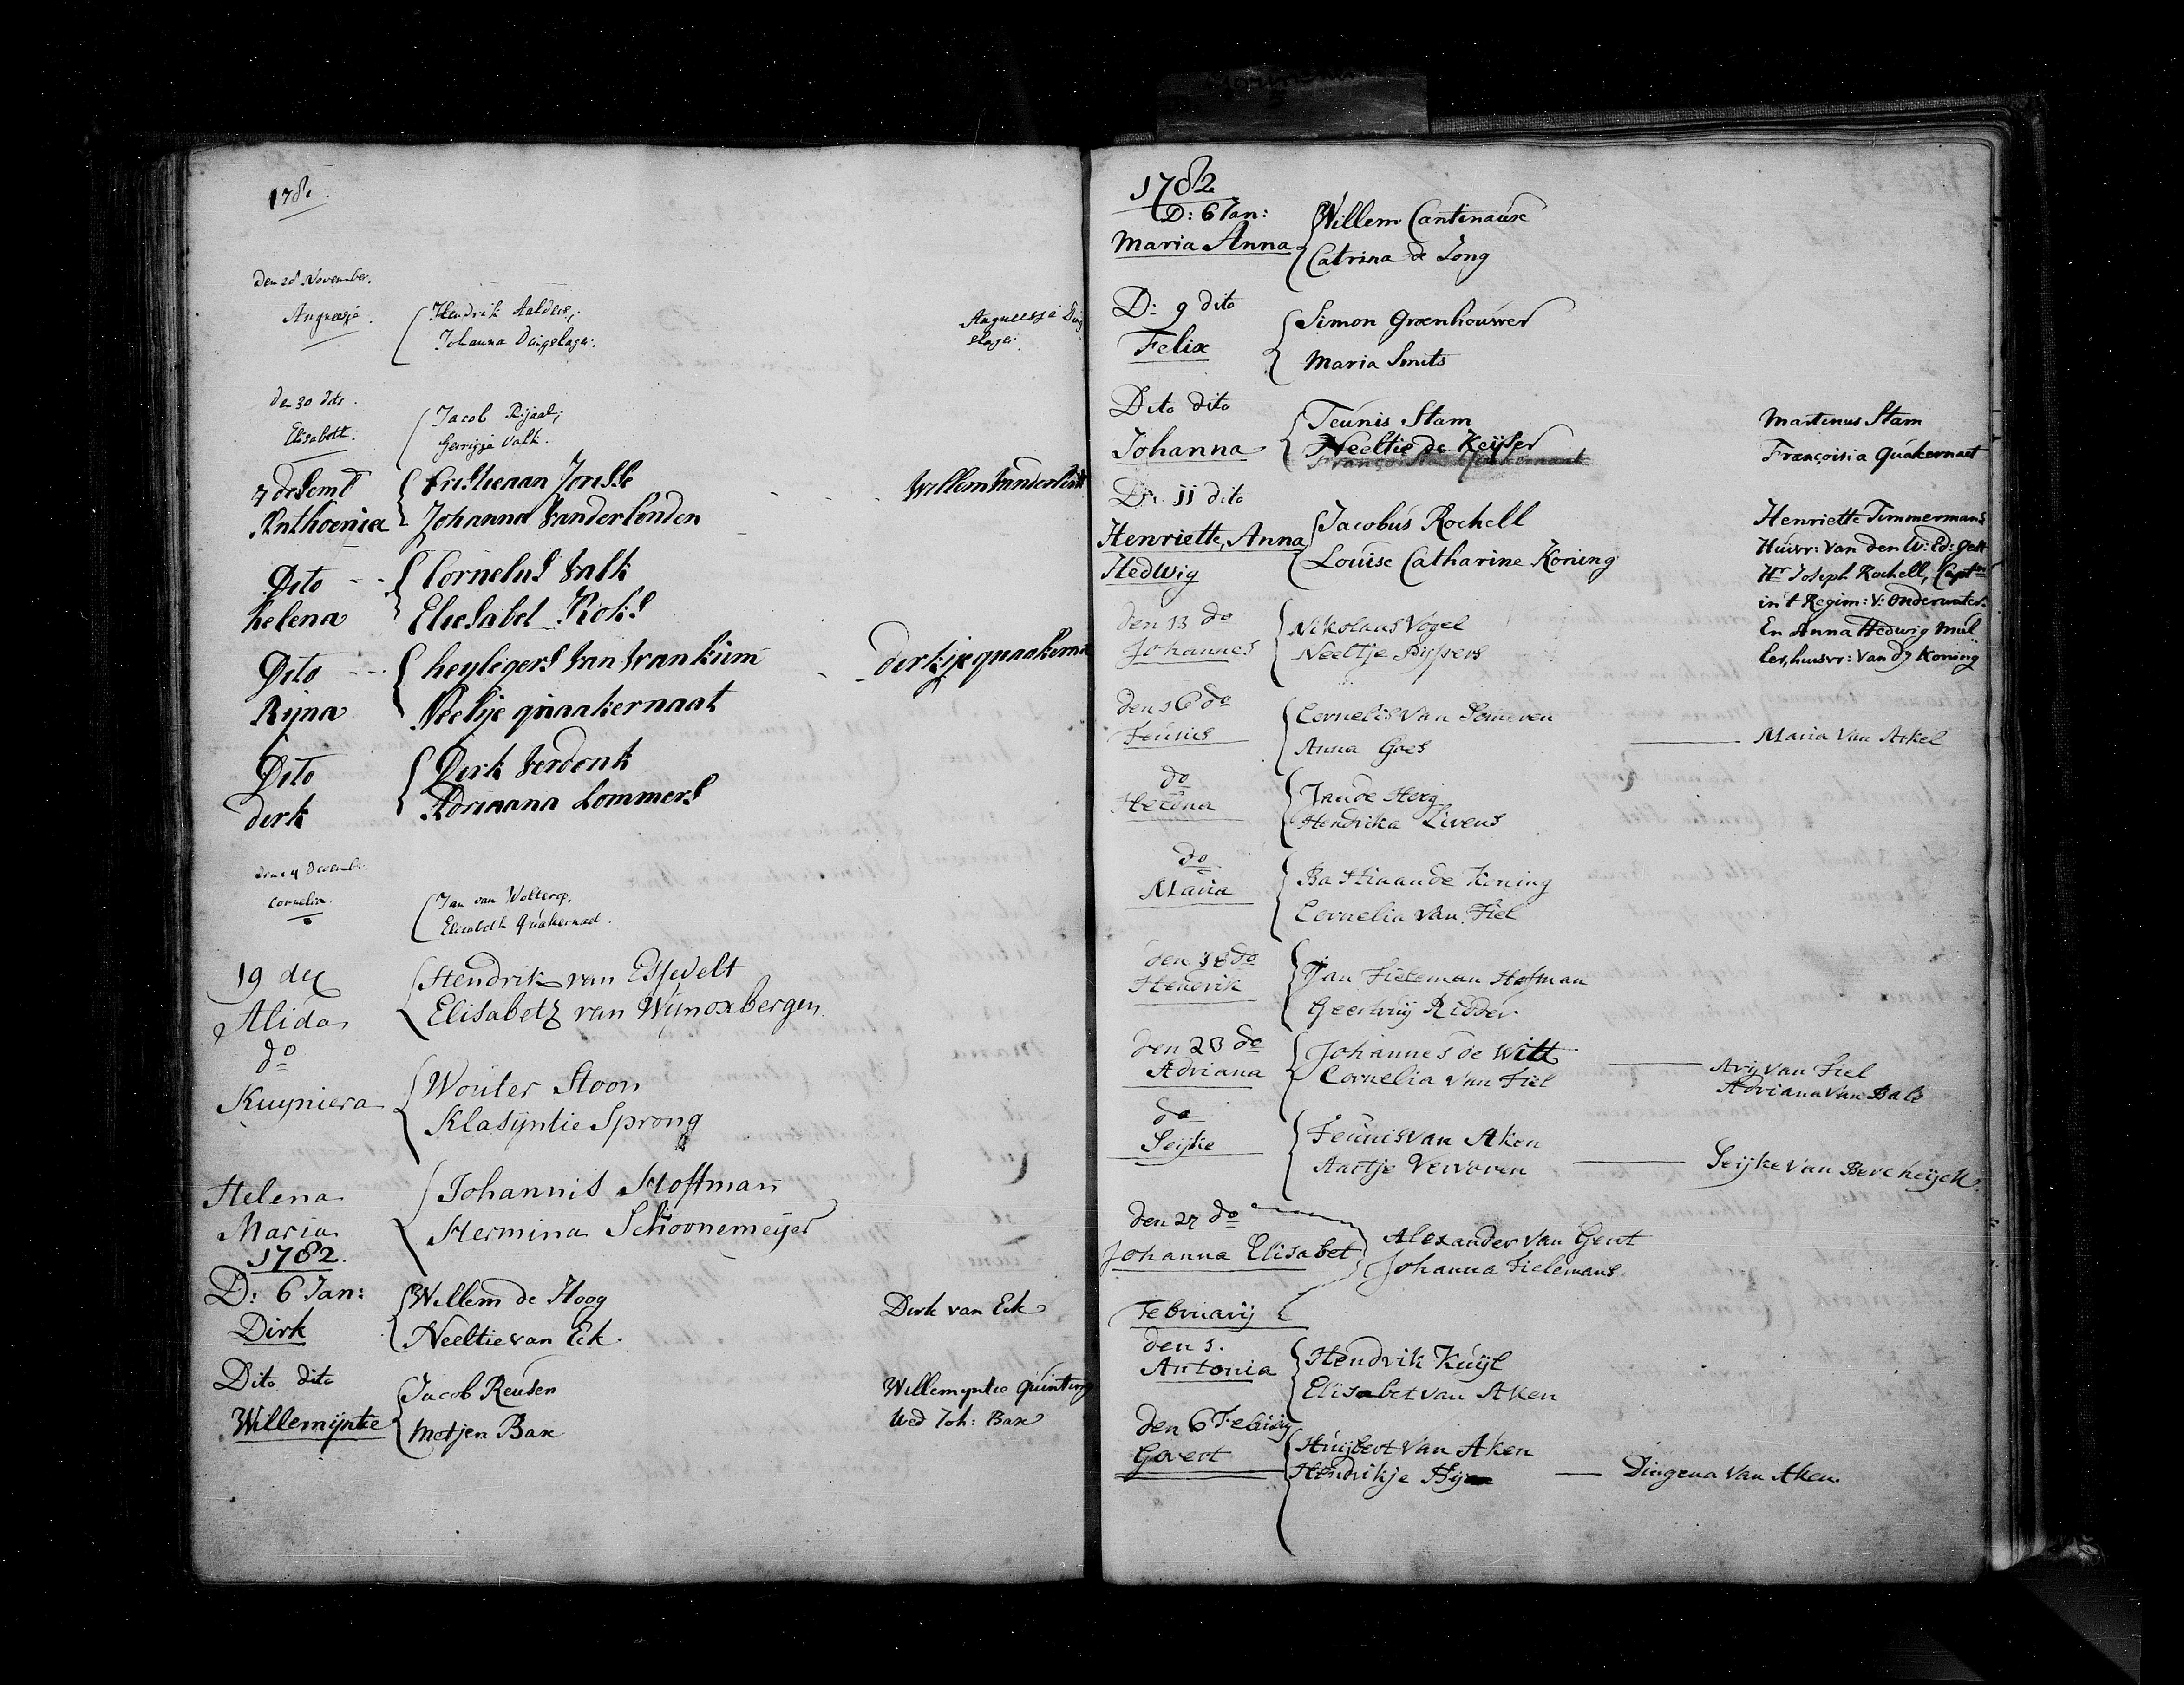 1781.
Den 28 November.
Angneesje.
Hendrik Aalders,
Johanna Dingslager.
Angneesje Ding
slager
den 30 dito.
Elisabeth.
Jacob Rijaal,
Gerrigje Valk.
7 desemb
Anthoenia
Christiaan Jorisse
Johanna Vanderlinden
Willem Vanderlinde
Dito
helena
Cornelus Valk
Eliesabet Roks
Dito
Rijna
heylegers van
Neeltje quaakernaat
derkije quaakerna
Dito
derk
Derk Verdonk
Adriaana Lommers
December
Cornelia.
Jan van Wolterop,
Elisabeth Quakernaat.
19 dec
Alida
Hendrik van Essevelt
Elisabetz van Wijnoxbergen
do
Kuyniera
Wouter Stoon
Klasijntie Sprong
Helena
Maria
Johannis Hoffman
Hermina Schoonemeijer
1782.
D: 6 Jan:
Dirk
Willem de Hoog
Neeltie van Eck.
Dirk van Eck
Dito dito
Willemijntie
Jacob Reusen
Metjen Bax
Willemyntie Quinting
Wed Joh: Bax
1782
D: 6 Jan:
Maria Anna
Willem Cantinaux
Catrina de Jong
D: 9 dito
Felix
Simon Groenhouwer
Maria Smits
Dito dito
Johanna
Teunis Stam
Neeltie de Keyser
Françoisia Quakernaat
Martinus Stam
Françoisia Quakernaat
D: 11 dito
Henriette, Anna
Hedwig
Jacobus Rochell
Louise Catharine Koning
Henriette Timmermans
Huisvr: van den W: Ed: Gest
Hr Joseph Rochell, Captn
in't Regim: v: Onderwater.
En Anna Hedwig Mul
ler, huisvr: van dj Koning
den 13 do
Johannes
Nikolaas Vogel
Neeltje Pijpers
den 16 do
Teunis
Cornelis van Someren
Anna Goes
Maria van Arkel
do
Helena
Jan de Hoog
Hendrika Livens
do
Maria
Bastiaan de Koning
Cornelia van Tiel
den 18 do
Hendrik
Jan Tieleman Hofman
Geertruij Ridder
den 23 do
Adriana
Johannes de Witt
Cornelia van Tiel
Arij van Tiel
Adriana van Bale
do
Seijke
Teunis van Aken
Aartje Vervoren
Seijke van Bercheijck
den 27 do
Johanna Elisabet
Alexander van Gent
Johanna Tielemans.
Februarij
den 3.
Antonia
Hendrik Kuijl
Elisabet van Aken
den 6 Febrúarij
Govert
Huijbert van Aken
Hendrikje
Dingena van Aken.